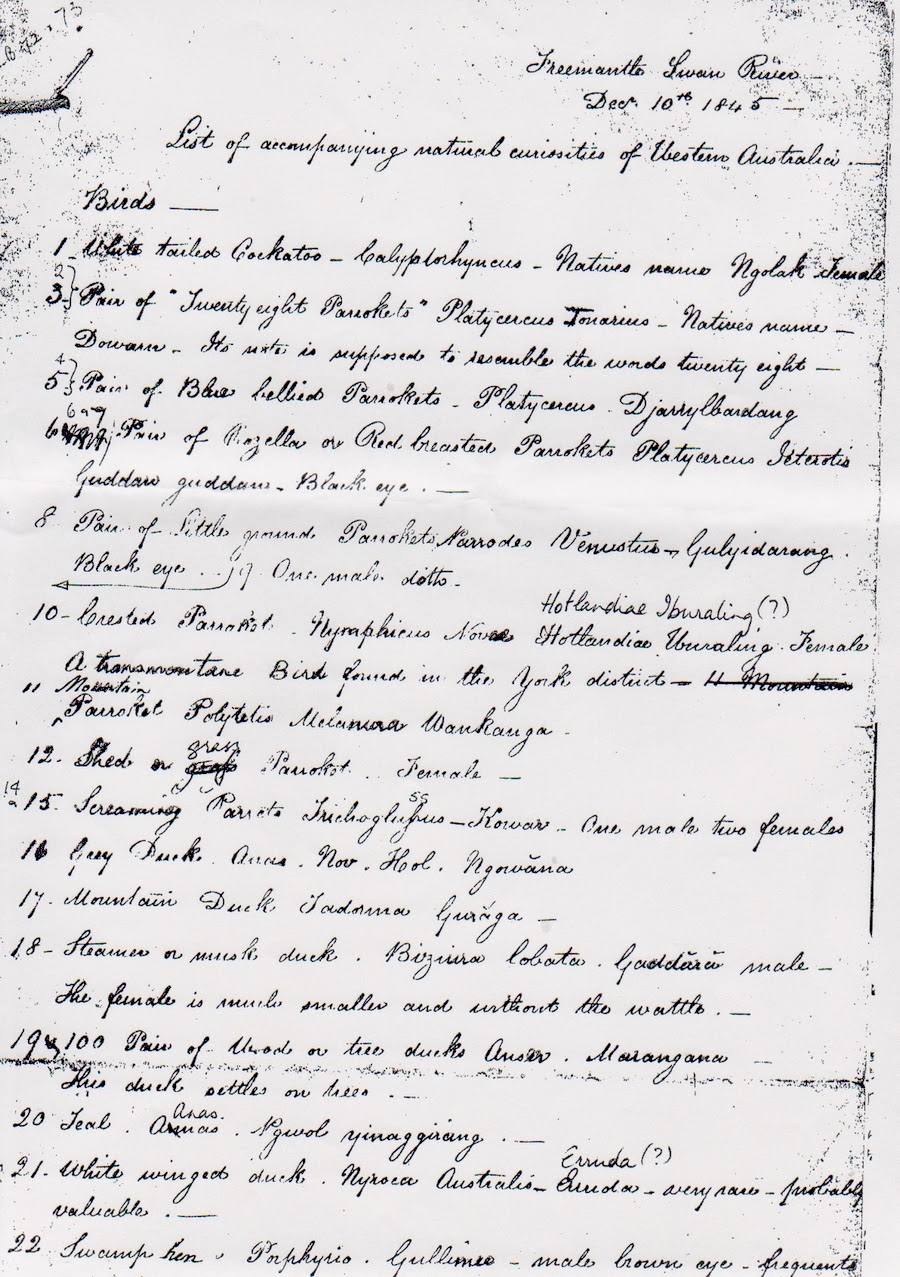 B 72. 73
Freemantle Swan River —
Decr. 10th 1845 —
List of accompanying natural curiosities of Western Australia. —
Birds —
1 - White tailed Cockatoo - Calyptorhyncus - Natives name Ngolak Female
2
3 } Pair of "Twenty eight Parrokets" Platycercus Zonarius - Natives name -
Dowarn - Its note is supposed to resemble the words twenty eight -
4
5 } Pair of Blue bellied Parrokets - Platycercus - Djarrylbardang
6 Pair of Rozella or Red breasted Parrokets Platycercus Icterotis
Guddan guddan - Black eye. —
8 Pair of Little ground Parrokets Narrodes Venustus - Gulyidarang.
Black eye . . . 9 One male ditto -
Hotlandiae Iburaling (?)
10 - Crested Parroket - Nymphicus Novae Hotlandiae Uburaling - Female
A transmontane Bird found in the York district - 11 Mountain
11 Mountain
Parroket Polytelis Melanura Wankanga -
12 - Shed or grass Parroket . Female —
grass
14
15 - Screaming Parrots Trichoglupus - Kowar - One male two females
ss
16 Grey Duck. Anas. Nov. Hol. Ngowăna
17 - Mountain Duck Tadorma Gurăga —
18 - Steamer or musk duck. Biziura lobata. Gaddără male -
The female is much smaller and without the wattle. —
19 100 Pair of Wood or tree ducks Anser. Marangana —
This duck settles on trees . —
Anas.
20 Teal. Annas. Ngwol yinaggirang. —
Erruda (?)
21 - White winged duck. Nyroca Australis - Erruda - very rare - probably
valuable. —
22 Swamp hen. Porphyrio. Gullimee - male brown eye - frequents